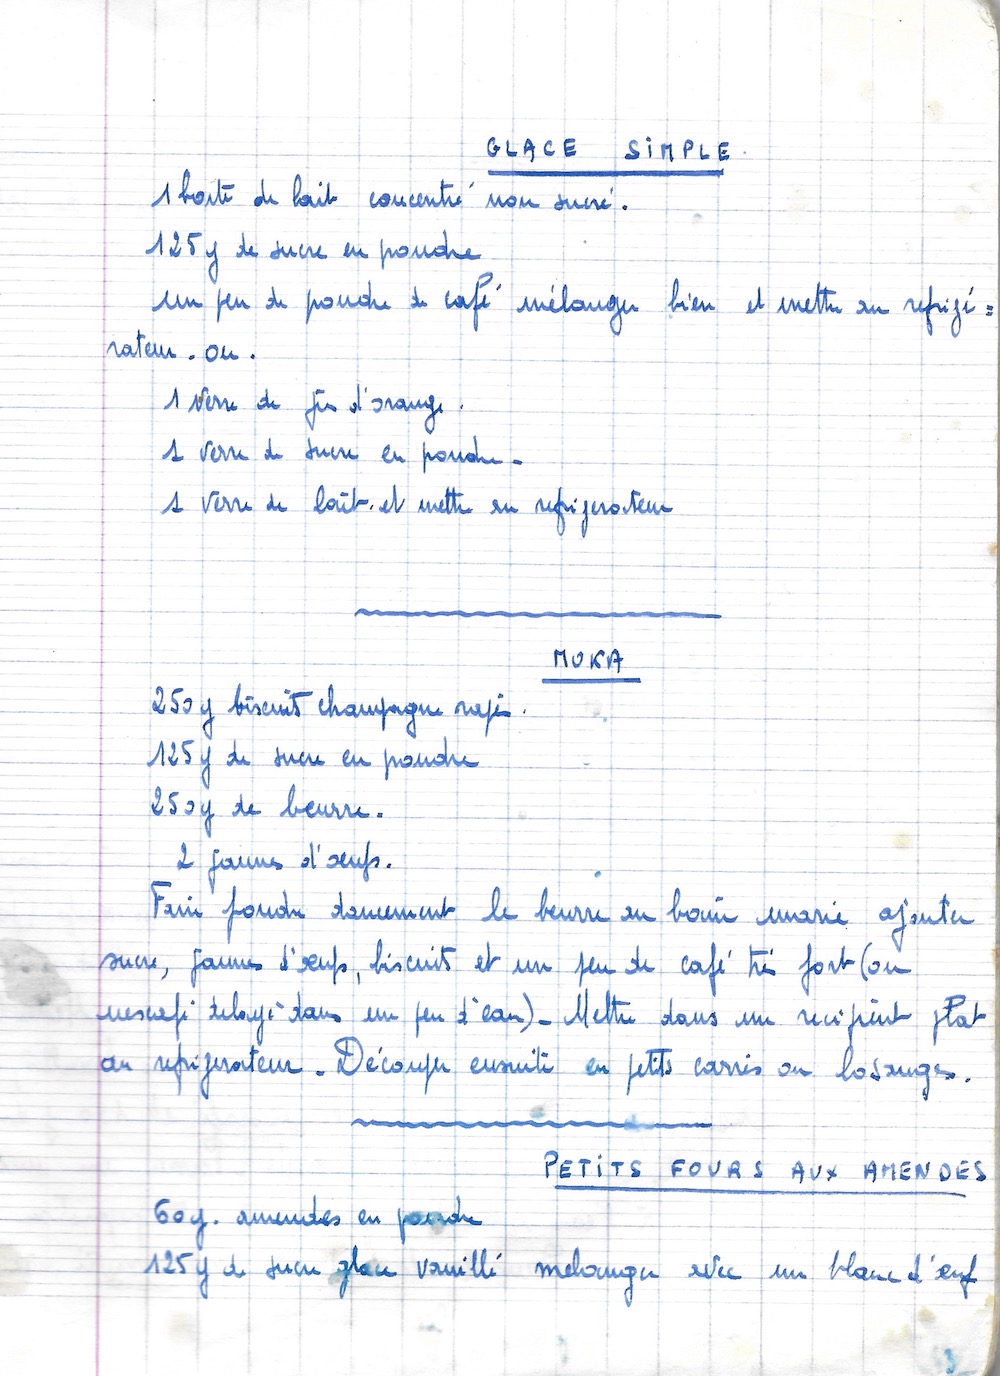 GLACE SIMPLE
1 boîte de lait concentré non sucré.
125 g de sucre en poudre
un peu de poudre de café mélanger bien et mettre au refrigé=
rateur. ou.
1 verre de jus d'orange.
1 verre de sucre en poudre.
1 verre de lait. et mettre au refrigerateur
MOKA
250 g biscuits champagne rapé.
125 g de sucre en poudre
250 g de beurre.
2 jaunes d'œufs.
Faire fondre doucement le beurre au bain marie ajouter
sucre, jaunes d'œufs, biscuits et un peu de café très fort (ou
nescafé delayé dans un peu d'eau). Mettre dans un recipient plat
au refrigerateur. Découper ensuite en petits carrés ou losanges.
PETITS FOURS AUX AMENDES
60 g. amendes en poudre
125 g de sucre glace vanillé melanger avec un blanc d'œuf
3